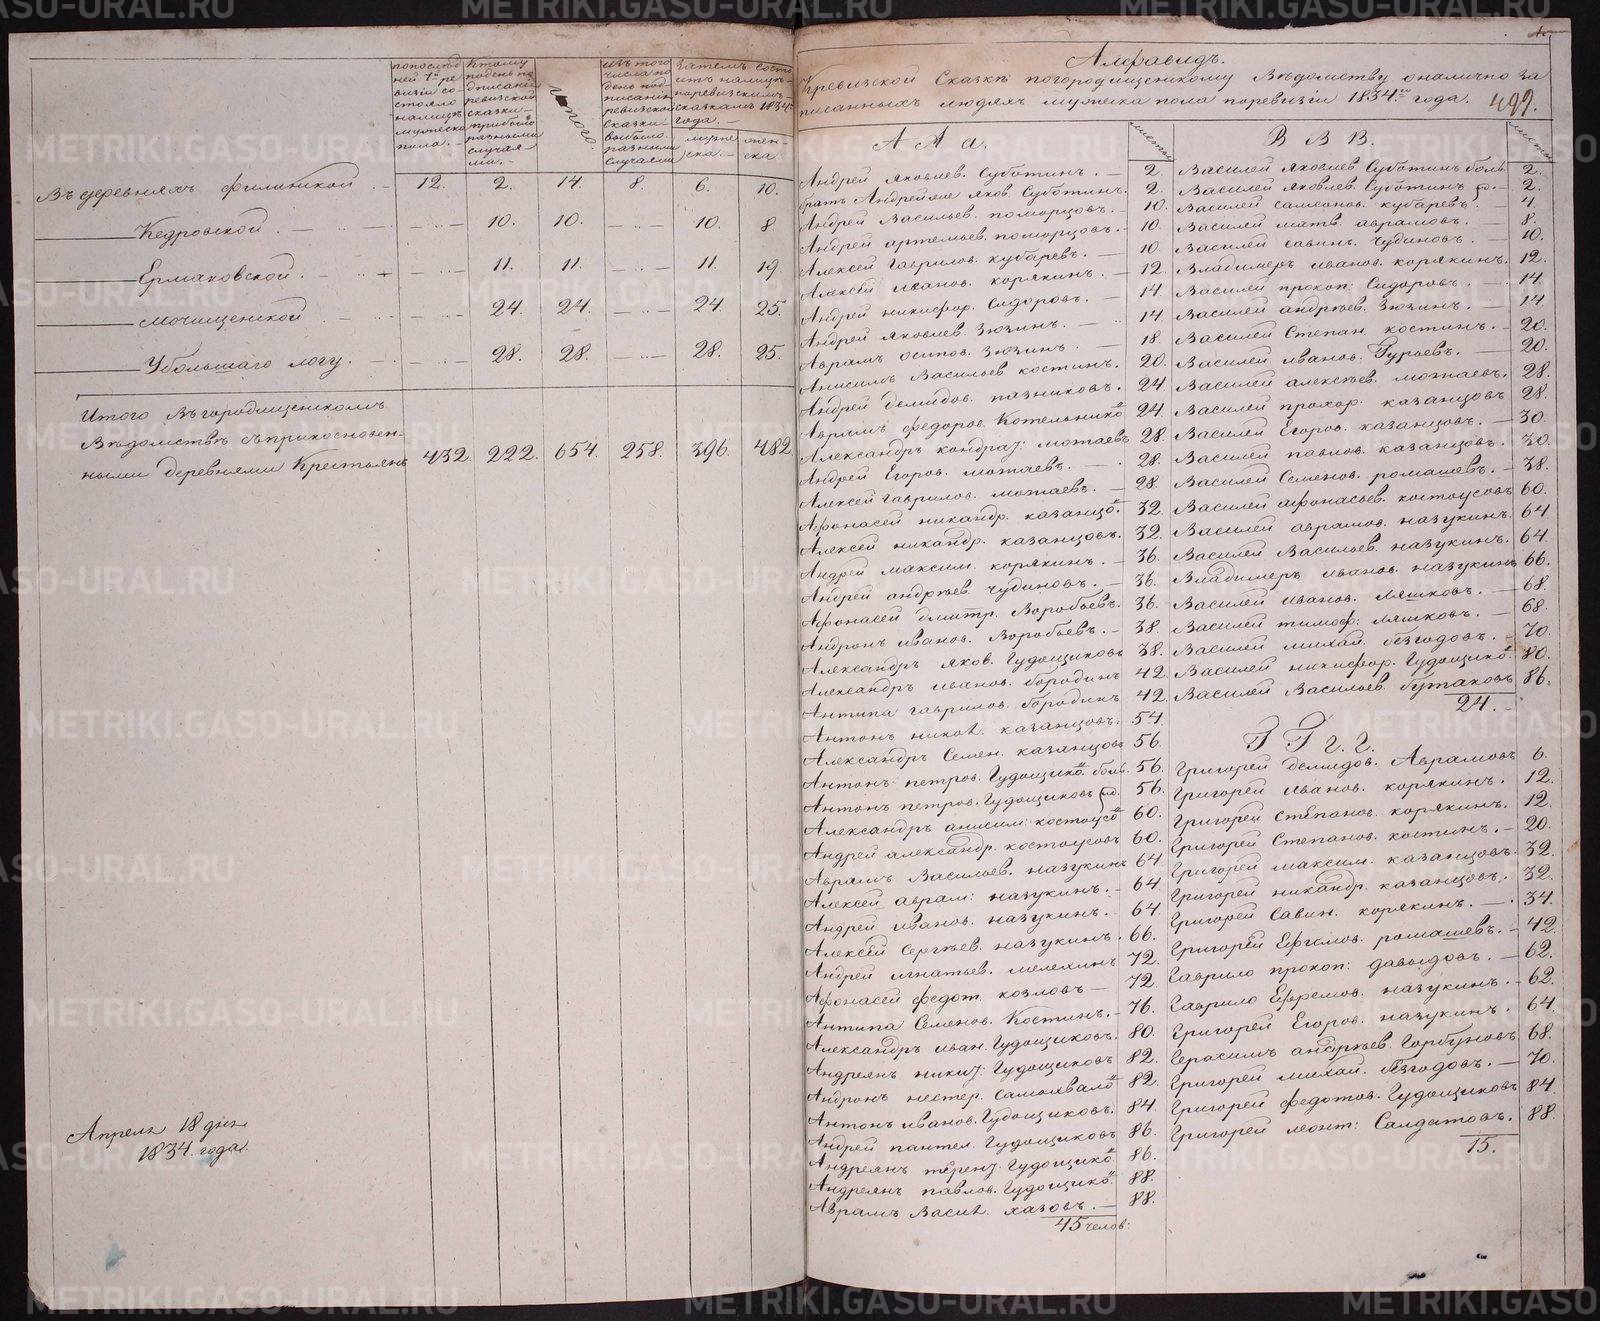 попослѣд
ней 7й ре
визіи со
стояло
налицѣ
мужеска
пола.
Ктому
подень по
дписанія
ревизской
сказки
прибыло
разными
случая
ми.
итого.
Изъ того
числа по
день под
писанія
ревизской
сказки
выбыло
разными
случаями
Затемъ состо
итъ налицѣ
поревизскимъ
сказкамъ 1834
года.
муже
ска.
жен
ска
Въ деревняхъ Филинской 12. 2. 14. 8. 6. 10.
Кедровской. 10. 10. 10. 8
Ермаковской. 11. 11. 11. 19
Мочищенской 24. 24. 24 25.
Убольшаго логу. 28. 28. 28. 25.
Итого Въгородищенскомъ
Вѣдомствѣ съприкосновен-
ными деревнями Крестьянъ 432. 222. 654. 258. 396. 482
Апреля 18 дня
1834. года
Алфавидъ.
Кревизской Сказкѣ погородищенскому Вѣдомству оналично за
писанныхъ людяхъ мужеска пола поревизіи 1834го года. 499.
А А а.
Андрей Яковлев. Суботинъ. 2.
братъ Андрейже Яков. Суботинъ. 2.
Андрей Васильев. поморцовъ. 10.
Андрей артемьев. поморцовъ. 10.
Алексей Гаврилов. кубаревъ. 10.
Алексей Иванов. корякинъ. 12.
Андрей никифор. Сидоровъ. 14.
Андрей Яковлев. Зюзинъ. 14
Аврамъ осипов. Зюзинъ. 18.
Анисимъ Васильев. костинъ. 20.
Андрей демидов. пазниковъ. 24
Аврамъ федоров. Котельнико 24
Александръ кондрат: мотаевъ 28.
Андрей Егоров. мотаевъ. 28.
Алексей Гаврилов. мотаевъ. 28.
Афонасей никандр. казанцо. 32.
Алексей никандр. казанцовъ. 32.
Андрей максим. корякинъ. 36.
Андрей андрѣев. чудиновъ. 36.
Афонасей дмитр. Воробьевъ. 36.
Андронъ Иванов. Воробьевъ. 38.
Александръ яков. Гудощиковъ 38.
Александръ иванов. бородинъ 42.
Антипа гаврилов. бородинъ 42.
Антонъ никол. казанцовъ. 54
Александръ Семен. казанцовъ 56.
Антонъ петров. Гудощико. боль. 56.
Антонъ петров. Гудощиковъ 56.
Александръ анисим: костоусо 60.
Андрей александр. костоусовъ 60.
Аврамъ Васильев. назукинъ 64
Алексей аврам: назукинъ. 64.
Андрей иванов. назукинъ. 64
Алексей Сергѣев. назукинъ. 66.
Андрей игнатьев. мелехинъ 72.
Афонасей федот. козловъ 72.
Антипа Семенов. Костинъ. 76.
Александръ иван. Гудощиковъ. 80.
Андреянъ никит: Гудощиковъ 82.
Андронъ нестер. Самохвало 82.
Антонъ иванов. Гудощиковъ. 84.
Андрей пантел. Гудощиковъ 86.
Андреянъ терент. Гудощико. 86.
Андреянъ павлов. Гудощико. 88.
Аврамъ Васил. хазовъ. 88.
45 челов:
В В В.
Василей Яковлев Суботинъ боль. 2.
Василей Яковлев. Суботинъ 2.
Василей Самсонов. кубаревъ. 4.
Василей матв. аврамовъ. 8.
Василей савин. Чудиновъ. 10.
Владимеръ иванов. корякинъ. 12.
Василей прокоп: Сидоровъ. 14.
Василей андрѣев. Зюзинъ. 14
Василей Степан. костинъ. 20.
Василей иванов. Гурьевъ. 20.
Василей алексѣев. мотаевъ. 28.
Василей прохор. казанцовъ 28.
Василей Егоров. казанцовъ. 30.
Василей павлов. казанцовъ. 30.
Василей Семенов. ромашевъ. 38.
Василей афонасьев. костоусовъ 60.
Василей аврамов. назукинъ. 64
Василей Васильев. назукинъ. 64
Владимеръ иванов. назукинъ 66.
Василей иванов. ляшковъ. 68.
Василей тимоф: ляшковъ. 68.
Василей михай. безгодовъ. 70.
Василей никифор. Гудощико. 80.
Василей Васильев. бутаковъ 86.
24.
Г Г г. г.
Григорей демидов. Аврамовъ 6.
Григорей иванов. корякинъ. 12.
Григорей степанов. корякинъ. 12.
Григорей Степанов. костинъ. 20.
Григорей максим. казанцовъ. 32.
Григорей никандр. казанцовъ. 32.
Григорей Савин. корякинъ. 34.
Григорей Ефимов. ромашевъ. 42.
Гаврило прокоп: давыдовъ. 62.
Гаврило Ефремов. назукинъ. 62.
Григорей Егоров. назукинъ. 64.
Герасимъ андрѣев. Горбуновъ 68.
Григорей михай. безгодовъ. 70.
Григорей федотов. Гудощиковъ 84
Григорей леонт: Салдатовъ. 88.
15.